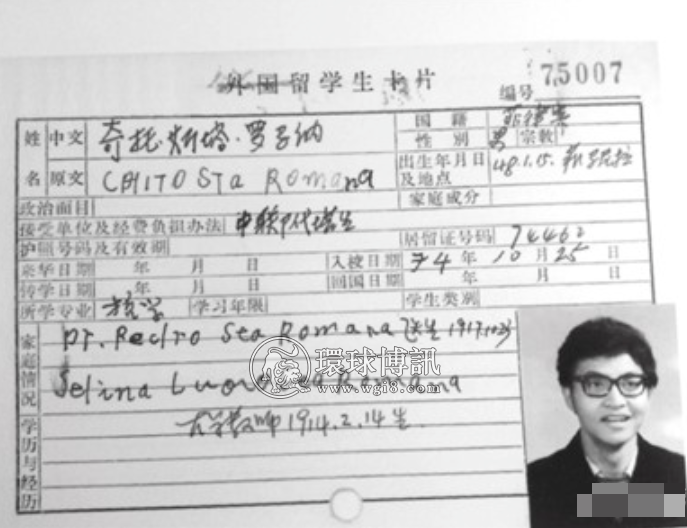 外国留学生卡片
编号 75007
姓名 中文 奇托·斯塔·罗马纳 国籍 菲律宾
性别 男 宗教
原文 CHITO Sta Romana 出生年月日及地点 48.1.15.
政治面目 家庭成分
接受单位及经费负担办法 中联部代培生
护照号码及有效期 居留证号码 74462
来华日期 年 月 日 入校日期 74 年 10 月 25 日
转学日期 年 月 日 回国日期 年 月 日
所学专业 哲学 学习年限 学生类别
家庭情况
Dr. Pedro Sta Romana
Selina
1914.2.14生
学历与经历
環球博訊
www.wgi8.com